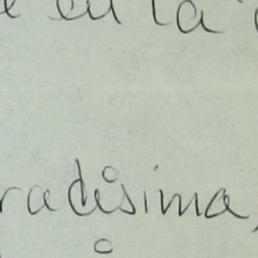 en la
radísima,